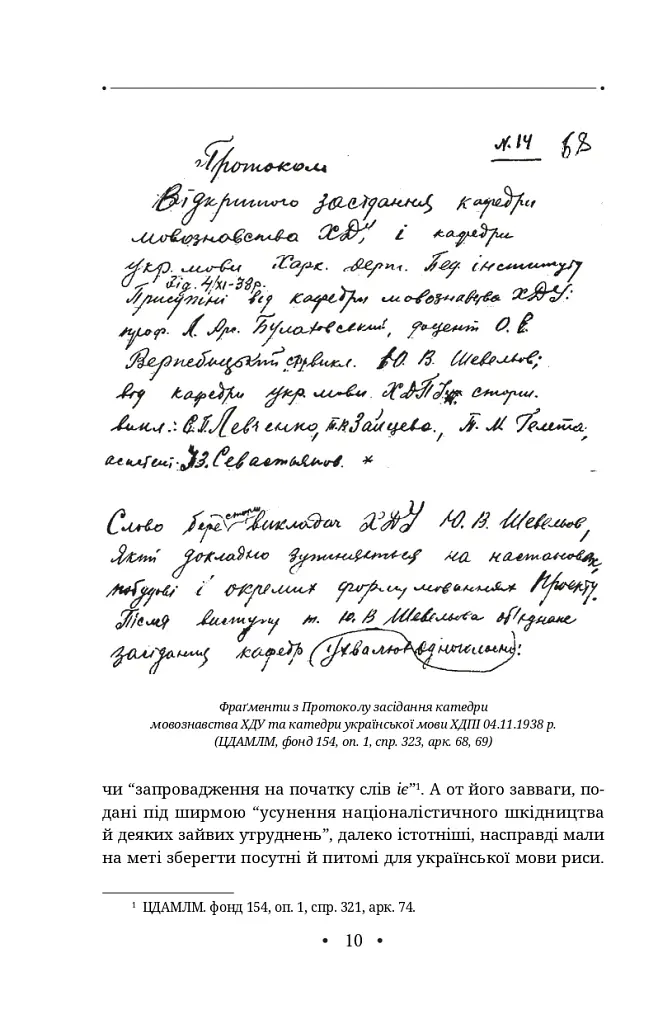 N. 14 68
Протокол
Відкритого засідання кафедри
мовознавства ХДУ, і кафедри
укр. мови Харк. держ. Пед. інституту
Від. 4/XI-38р.
Присутні від кафедри мовознавства ХДУ:
проф. Л. Арс. Булаховський, доцент О. В.
викл. Ю. В. Шевельов;
від кафедри укр. мови ХДПІ, старш.
викл.: С.П. Левченко, Зайцева, П. М. Гелета,
асистент: Севастьянов. *
Слово бере старш викладач ХДУ Ю. В. Шевельов,
Який докладно зупиняється на настановах,
побудові і окремих формулюваннях Проєкту.
Після виступу т. Ю. В Шевельова об'єднане
засідання кафедр ухвалює одноголосно:
Фраґменти з Протоколу засідання катедри
мовознавства ХДУ та катедри української мови ХДПІ 04.11.1938 р.
(ЦДАМЛМ, фонд 154, оп. 1, спр. 323, арк. 68, 69)
чи “запровадження на початку слів іє”¹. А от його завваги, по-
дані під ширмою “усунення націоналістичного шкідництва
й деяких зайвих утруднень”, далеко істотніші, насправді мали
на меті зберегти посутні й питомі для української мови риси.
¹ ЦДАМЛМ. фонд 154, оп. 1, спр. 321, арк. 74.
• 10 •